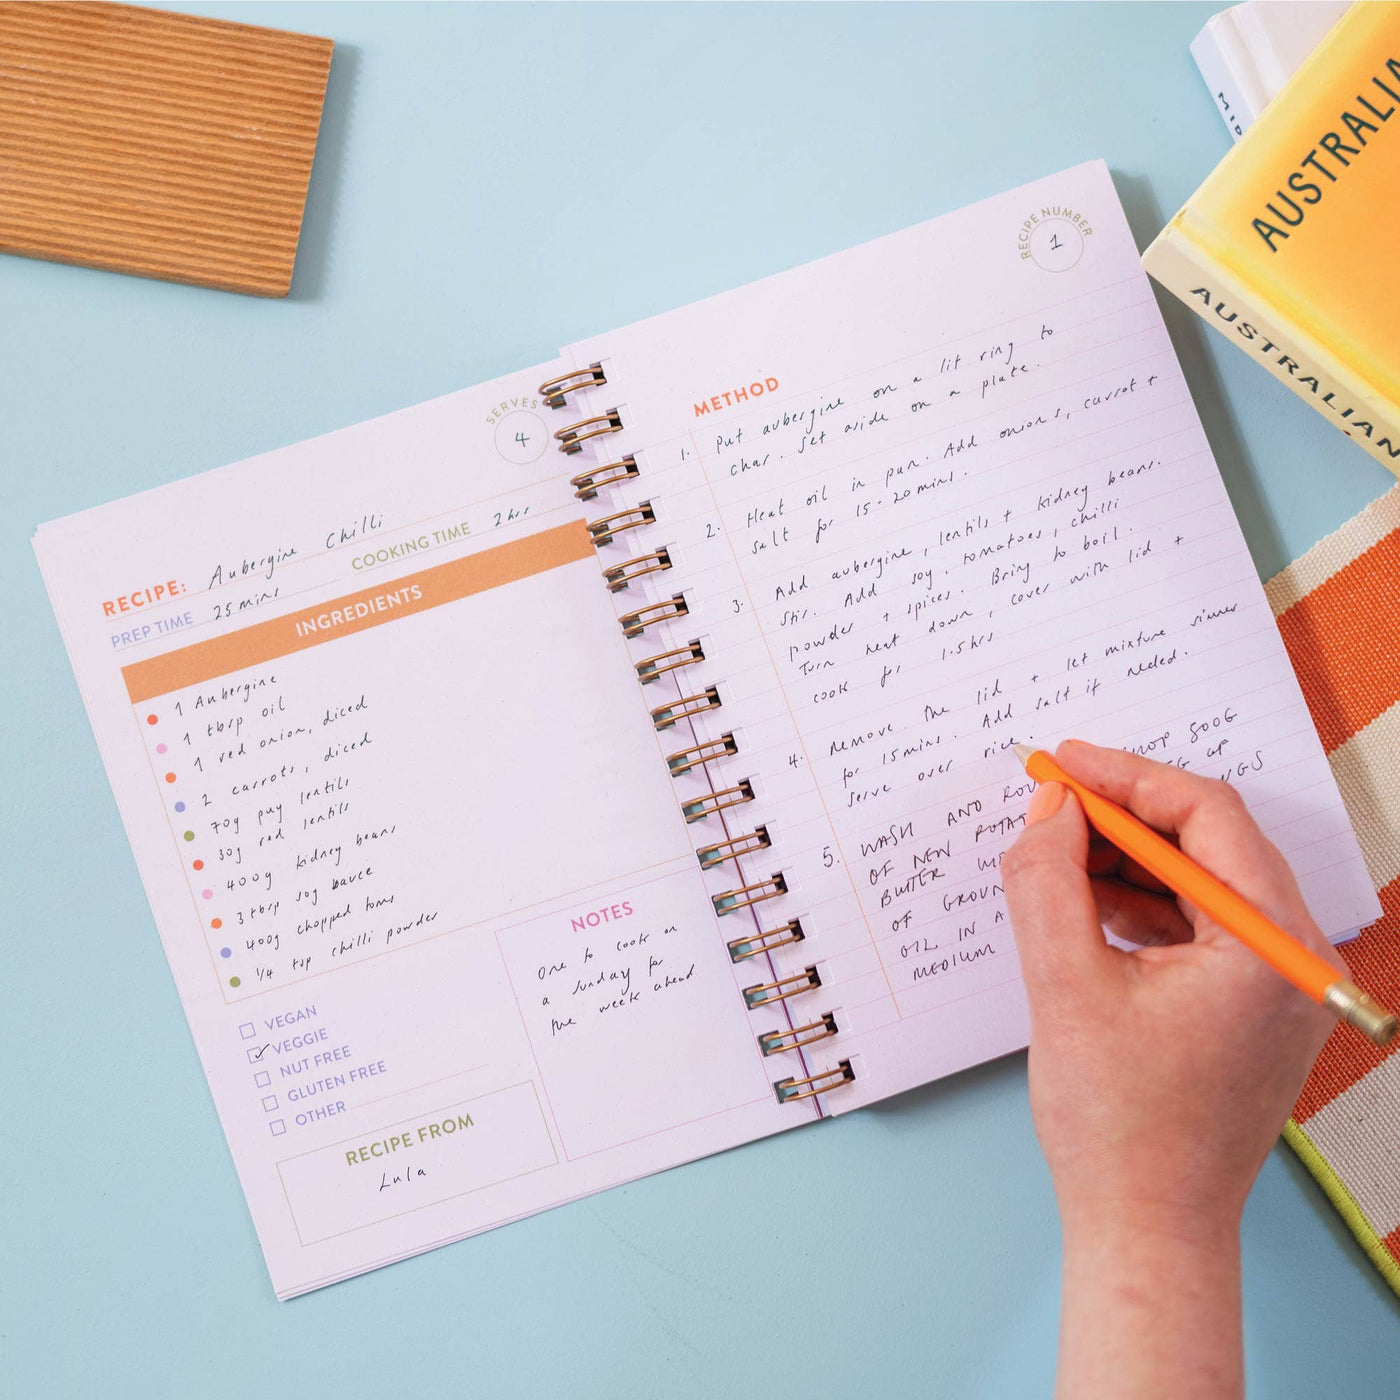 SERVES
4
RECIPE: Aubergine Chilli
PREP TIME 25 mins COOKING TIME 2 hrs
INGREDIENTS
1 Aubergine
1 tbsp oil
1 red onion, diced
2 carrots, diced
70g puy lentils
30g red lentils
400g kidney beans
3 tbsp soy sauce
400g chopped toms
1/4 tsp chilli powder
VEGAN
✓ VEGGIE
NUT FREE
GLUTEN FREE
OTHER
NOTES
One to cook on
a sunday for
the week ahead
RECIPE FROM
Lula
RECIPE NUMBER
1
METHOD
1. Put aubergine on a lit ring to
char. Set aside on a plate.
2. Heat oil in pan. Add onions, carrot +
salt for 15-20 mins.
3. Add aubergine, lentils + kidney beans.
Stir. Add soy. tomatoes, chilli
powder + spices. Bring to boil.
Turn heat down, cover with lid +
cook for 1.5hrs
4. Remove the lid + let mixture simmer
for 15mins. Add salt if needed.
Serve over rice.
5. WASH AND CHOP 800G
OF NEW UP
BUTTER
OF
OIL IN A
MEDIUM
AUSTRALIA
AUSTRALIAN